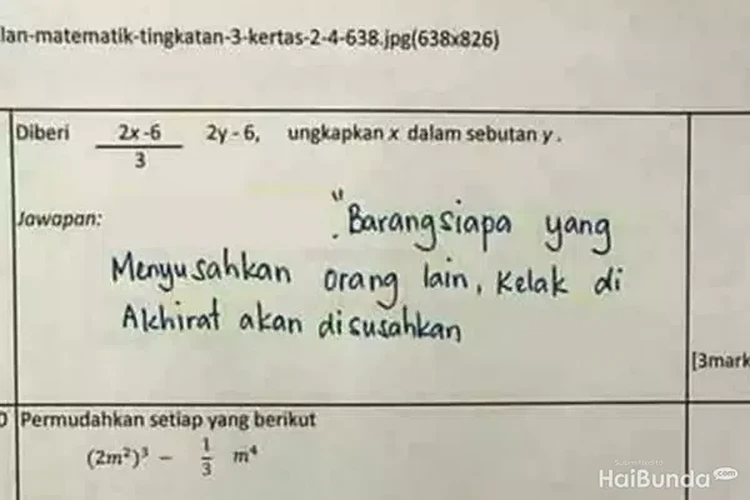 lan-matematik-tingkatan-3-kertas-2-4-638.jpg(638x826)
Diberi 2x-6/3 2y - 6, ungkapkan x dalam sebutan y.
Jawapan:
"Barangsiapa yang
Menyusahkan orang lain, Kelak di
Akhirat akan disusahkan
[3mark
Permudahkan setiap yang berikut
(2m²)³ - 1/3 m⁴
HaiBunda.com